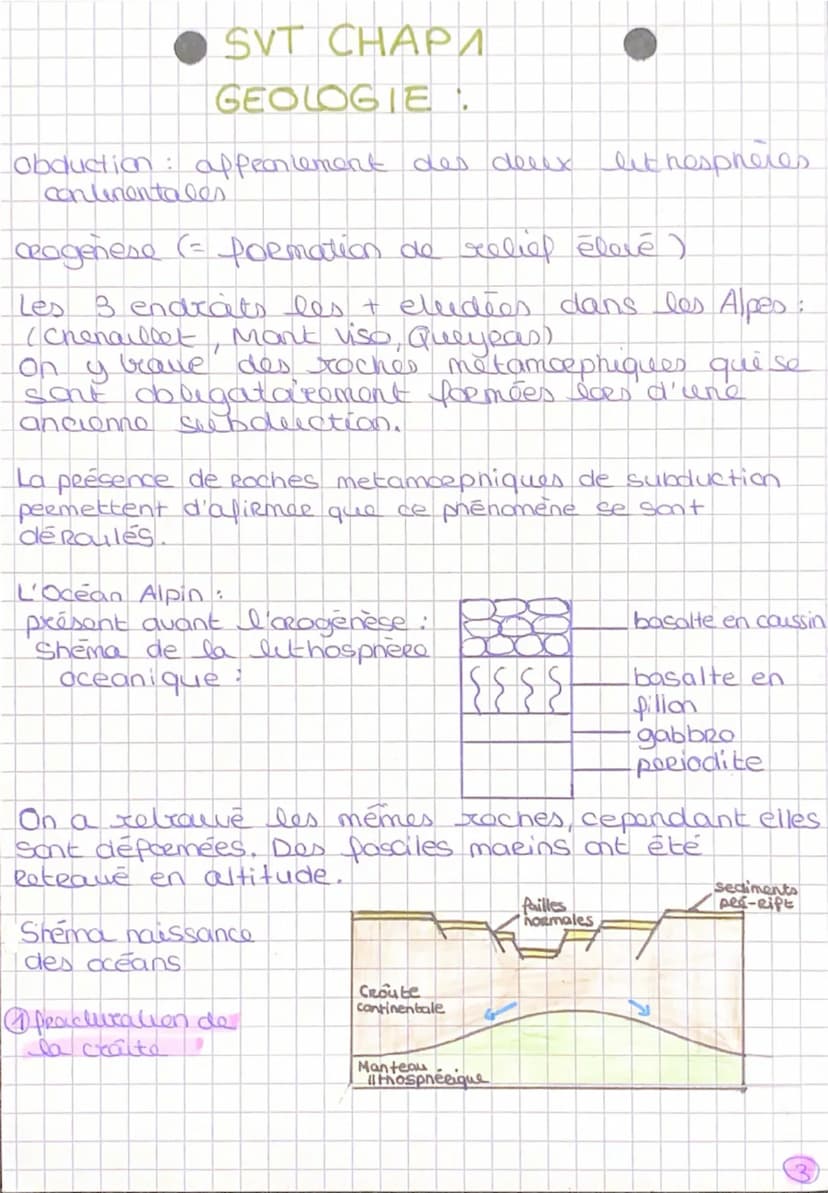 SVT CHAP1
GEOLOGIE :
Obduction : affrontement des deux lithosphères
continentales
orogénèse (= formation de relief élevé)
Les 3 endroits les + étudiées dans les Alpes :
(Chenaillet, Mont Viso, Queyras)
On y trouve des roches métamorphiques qui se
sont obligatoirement formées lors d'une
ancienne subduction.
La présence de roches metamorphiques de subduction
permettent d'afirmer que ce phénomène se sont
déroulés.
L'Océan Alpin :
présent avant l'orogénèse :
Shéma de la lithosphère
océanique :
basalte en coussin
basalte en
fillon
gabbro
periodite
On a retrouvé les mêmes roches, cependant elles
sont déformées. Des fossiles marins ont été
retrouvé en altitude.
Shéma naissance
des océans
① fracturation de
la croûte
failles
normales
sediments
pré-rift
Croûte
continentale
Manteau
lithosphérique
3